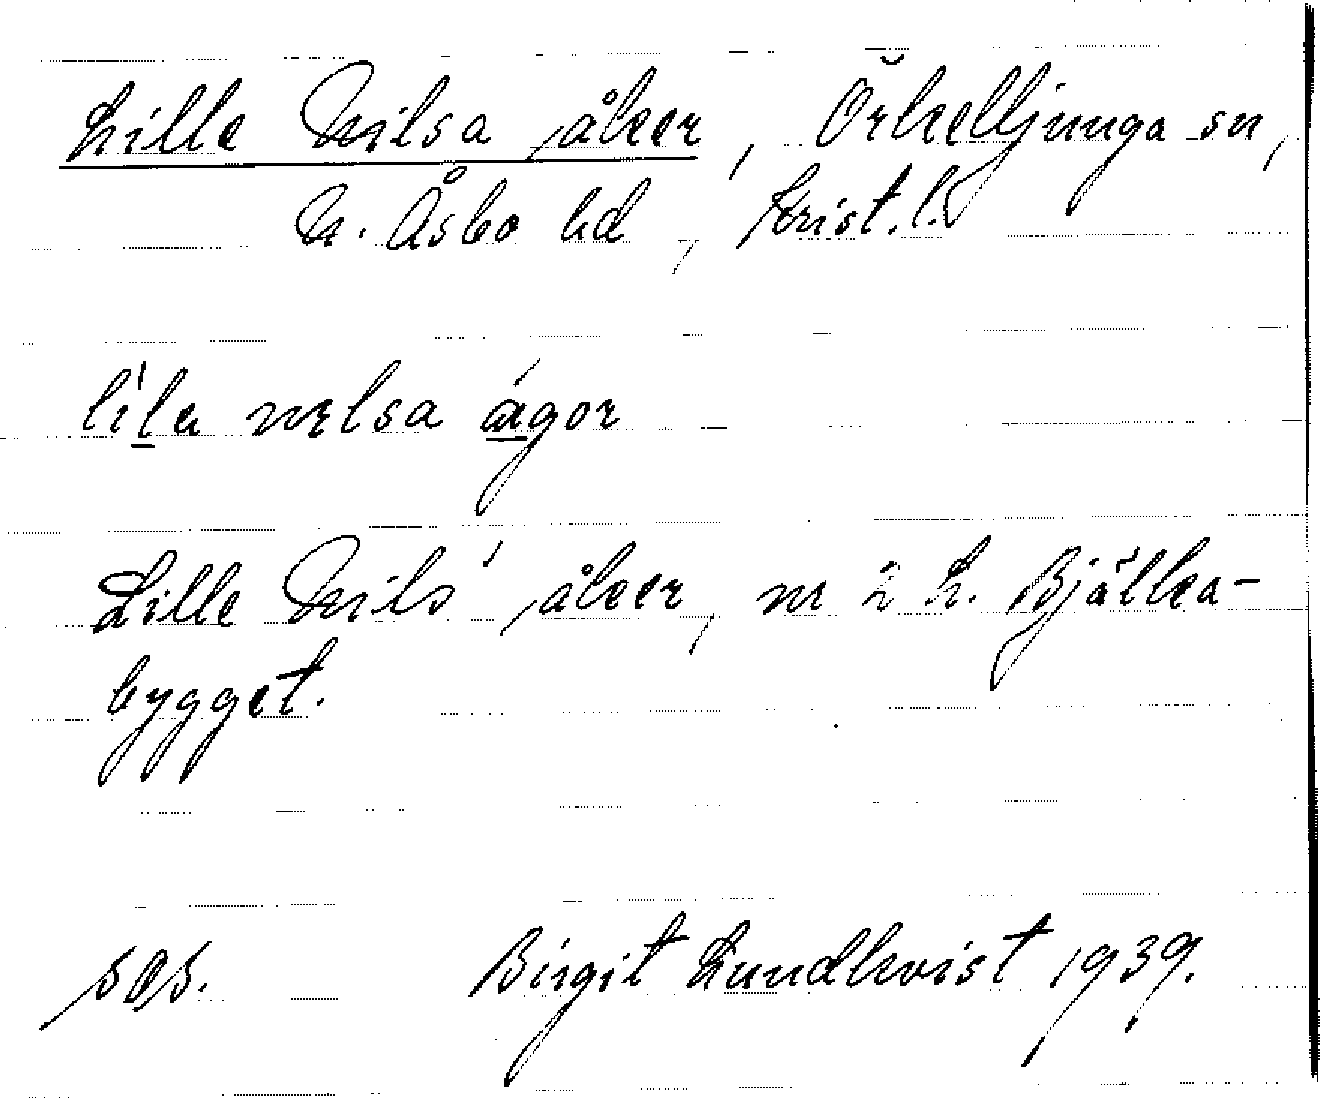 Lille Nilsa åker, Örkelljunga sn,
N. Åsbo hd, Krist. l.
lila nelsa ágor
Lille Nils' åker, nr 2 L. Bjälka-
bygget.
Birgit Lundkvist 1939.